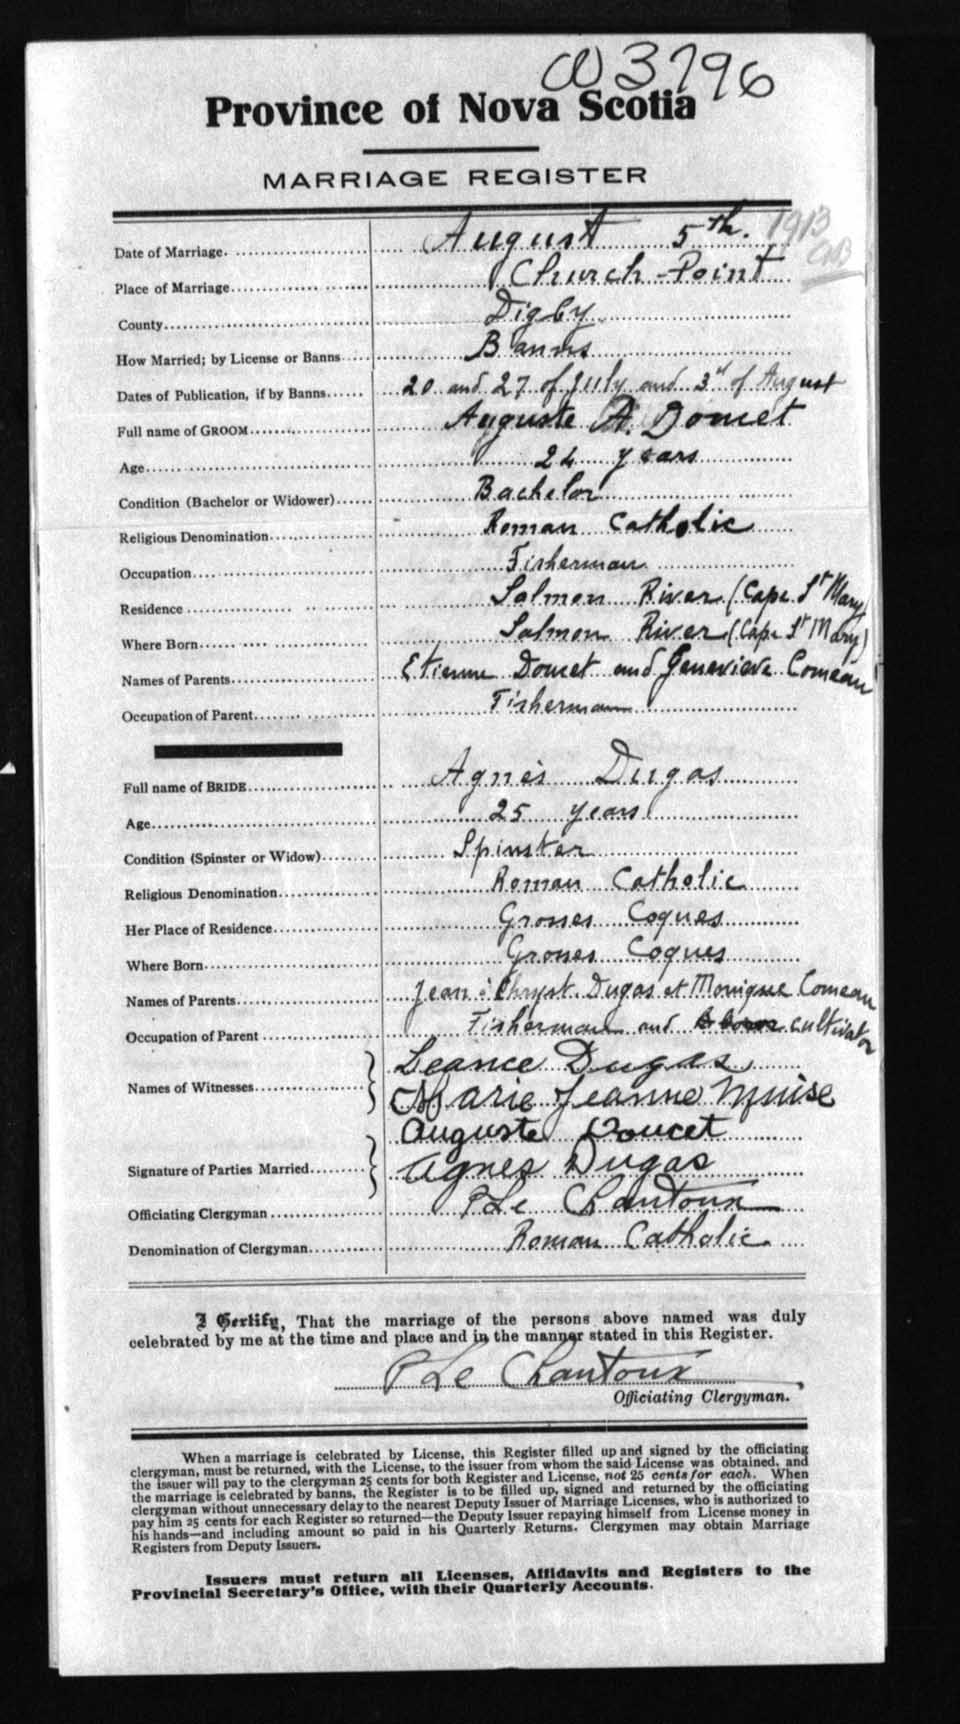 3796
Province of Nova Scotia
MARRIAGE REGISTER
Date of Marriage. August 5th. 1913
Place of Marriage Church-Point
County Digby
How Married; by License or Banns Banns
Dates of Publication, if by Banns 20 and 27 of July and 3d of August
Full name of GROOM Auguste A. Doucet
Age 24 years
Condition (Bachelor or Widower) Bachelor
Religious Denomination Roman Catholic
Occupation Fisherman
Residence Salmon River (Cape St Mary)
Where Born Salmon River (Cape St Mary)
Names of Parents Etienne Doucet and Genevieve Comeau
Occupation of Parent Fisherman
Full name of BRIDE Agnès Dugas
Age 25 years
Condition (Spinster or Widow) Spinster
Religious Denomination Roman Catholic
Her Place of Residence Grosses Coques
Where Born Grosses Coques
Names of Parents Jean Chryst. Dugas et Monique Comeau
Occupation of Parent Fisherman and cultivator
Names of Witnesses Léance Dugas
Marie Jeanne Muise
Auguste Doucet
Signature of Parties Married Agnes Dugas
Officiating Clergyman P Le Chantoux
Denomination of Clergyman Roman Catholic.
I Certify, That the marriage of the persons above named was duly
celebrated by me at the time and place and in the manner stated in this Register.
P Le Chantoux
Officiating Clergyman.
When a marriage is celebrated by License, this Register filled up and signed by the officiating
clergyman, must be returned, with the License, to the issuer from whom the said License was obtained, and
the issuer will pay to the clergyman 25 cents for both Register and License, not 25 cents for each. When
the marriage is celebrated by banns, the Register is to be filled up, signed and returned by the officiating
clergyman without unnecessary delay to the nearest Deputy Issuer of Marriage Licenses, who is authorized to
pay him 25 cents for each Register so returned—the Deputy Issuer repaying himself from License money in
his hands—and including amount so paid in his Quarterly Returns. Clergymen may obtain Marriage
Registers from Deputy Issuers.
Issuers must return all Licenses, Affidavits and Registers to the
Provincial Secretary's Office, with their Quarterly Accounts.